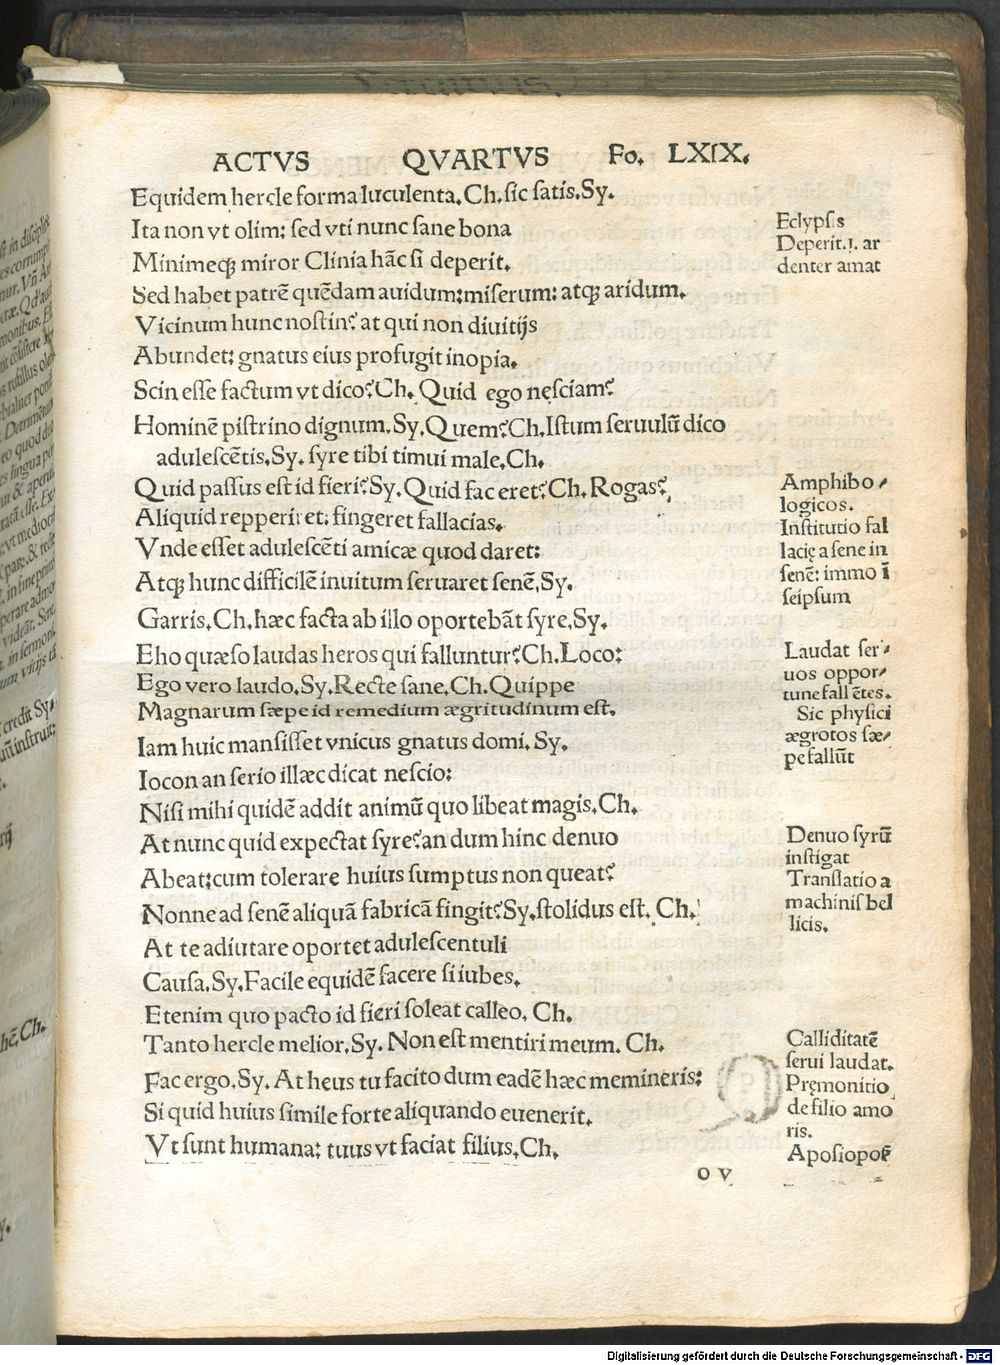 ACTVS QVARTVS Fo. LXIX.
Equidem hercle forma luculenta. Ch. sic satis. Sy.
Ita non vt olim: sed vti nunc sane bona
Minimeqꝫ miror Clinia hãc si deperit.
Sed habet patrẽ quẽdam auidum: miserum: atqꝫ aridum.
Vicinum hunc nostin? at qui non diuitijs
Abundet: gnatus eius profugit inopia.
Scin esse factum vt dico? Ch. Quid ego nęsciam?
Hominẽ pistrino dignum. Sy. Quem? Ch. Istum seruulũ dico
adulescẽtis. Sy. syre tibi timui male. Ch.
Quid passus est id fieri? Sy. Quid faceret? Ch. Rogas?
Aliquid repperiret: fingeret fallacias.
Vnde esset adulescẽti amicæ quod daret:
Atqꝫ hunc difficilẽ inuitum seruaret senẽ. Sy.
Garris. Ch. hæc facta ab illo oportebãt syre. Sy.
Eho quæso laudas heros qui falluntur? Ch. Loco:
Ego vero laudo. Sy. Recte sane. Ch. Quippe
Magnarum sæpe id remedium ægritudinum est.
Iam huic mansisset vnicus gnatus domi. Sy.
Iocon an serio illæc dicat nescio:
Nisi mihi quidẽ addit animũ quo libeat magis. Ch.
At nunc quid expectat syre? an dum hinc denuo
Abeat: cum tolerare huius sumptus non queat?
Nonne ad senẽ aliquã fabricã fingit? Sy. stolidus est. Ch.
At te adiutare oportet adulescentuli
Causa. Sy. Facile equidẽ facere si iubes.
Etenim quo pacto id fieri soleat calleo. Ch.
Tanto hercle melior. Sy. Non est mentiri meum. Ch.
Fac ergo. Sy. At heus tu facito dum eadẽ hæc memineris:
Si quid huius simile forte aliquando euenerit.
Vt sunt humana: tuus vt faciat filius. Ch.
O V
Eclypsis
Deperit. i. ar
denter amat
Amphibo⸗
logicos.
Institutio fal
lacię a sene in
senẽ: immo ĩ
seipsum
Laudat ser⸗
uos oppor⸗
tune fallẽtes.
Sic physici
ægrotos sæ⸗
pe fallũt
Denuo syrũ
instigat
Translatio a
machinis bel
licis.
Calliditatẽ
serui laudat.
Pręmonitio
de filio amo
ris.
Aposiopos
Digitalisierung gefördert durch die Deutsche Forschungsgemeinschaft - DFG